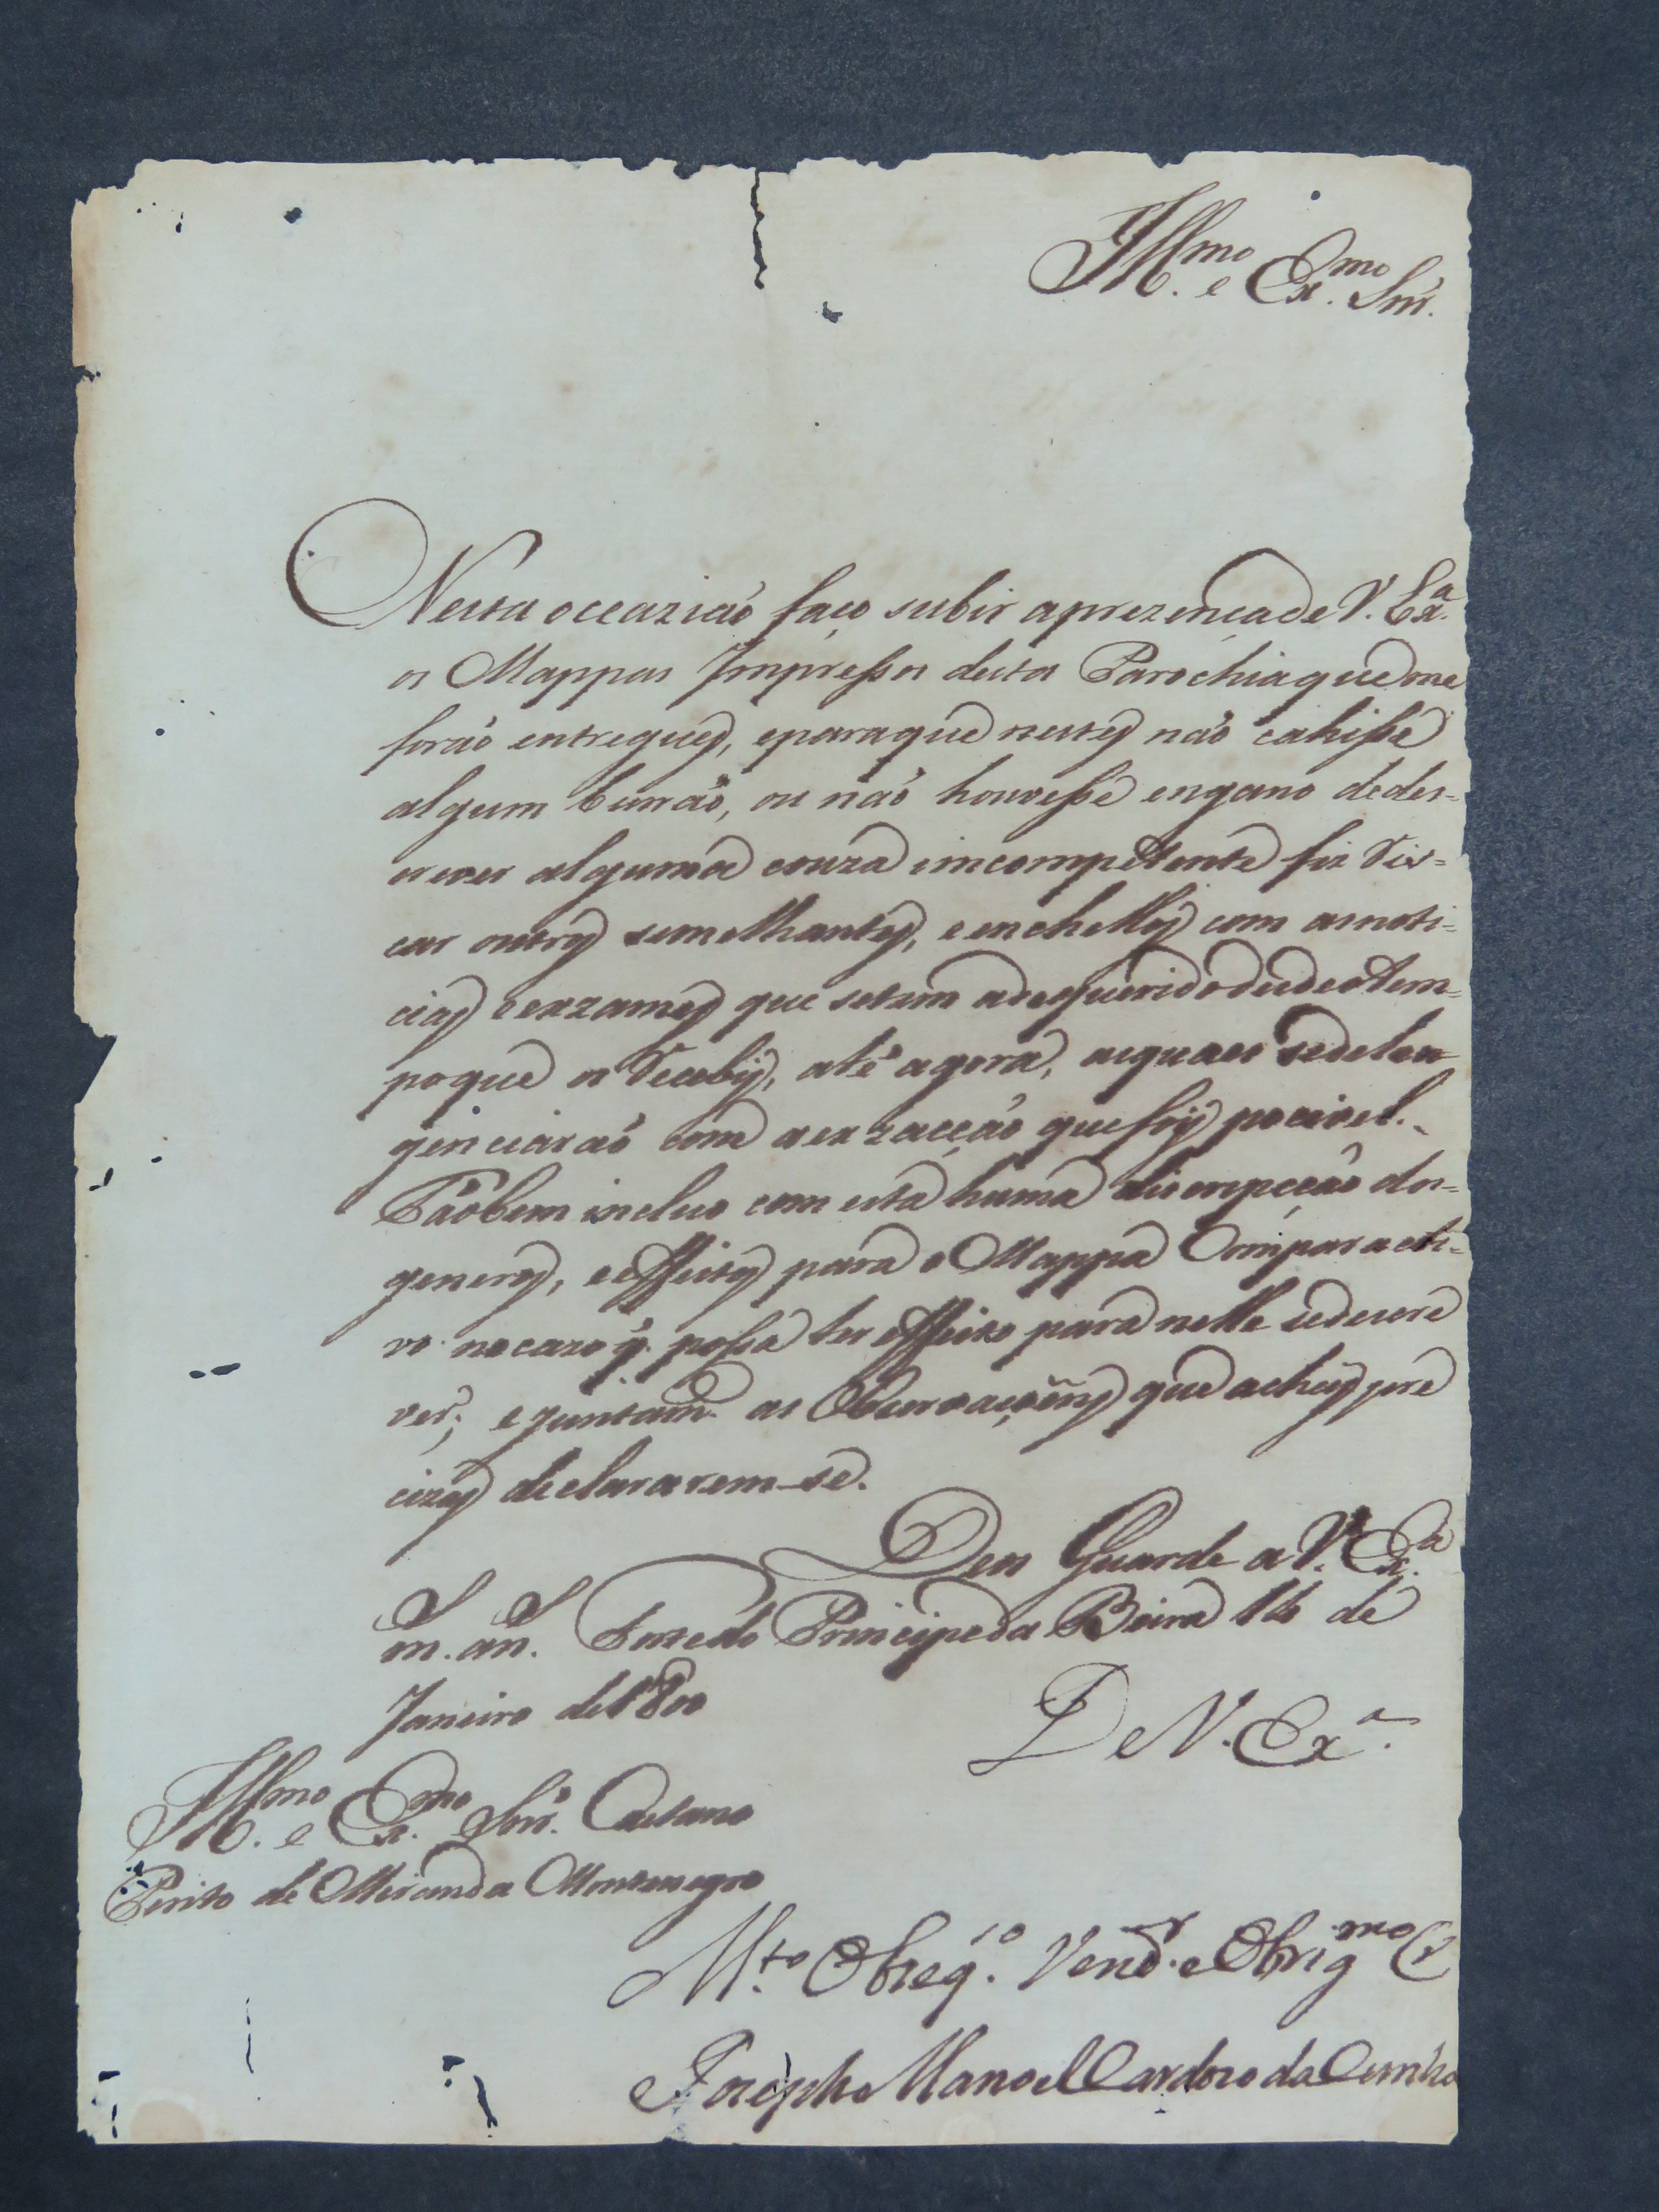 Ill.mo e Ex.mo Snr.
Nesta occazião faço subir aprezençade V. Ex.a
os Mappas Impressos desta Parochiaque me
forão entregues, eparaque nestes não cahisse
algum burrão, ou não houvesse engano dedes-
crever alguma couza imcompetente fis ris-
car outros semelhantes, e enchellos com asnoti-
cias e exzames que setem adequeridodesdeotem-
poque os recebij, até agora, asquaes sedele
genciarão com aexzacção que foij pocivel.
Tãobem incluo com esta huma discripcção dos-
generos, e effeitos para o Mappa Comparacti-
vo nocazo q. possa ter effeito para nelle sedescre
ver; ejuntam. as Observaçoens que acheij pre
cizas declararem-se.
Deos Guarde a V. Ex.a
m. an. Forte do Principe da Beira 16 de
Janeiro de 1800
De V. Ex.a
Ill.mo e Ex.mo Snr. Caetano
Pinto de Miranda Montenegro
M.to Obseq.o Vend.r e Obrig.mo C
Joseph Manoel Cardozo da Cunha